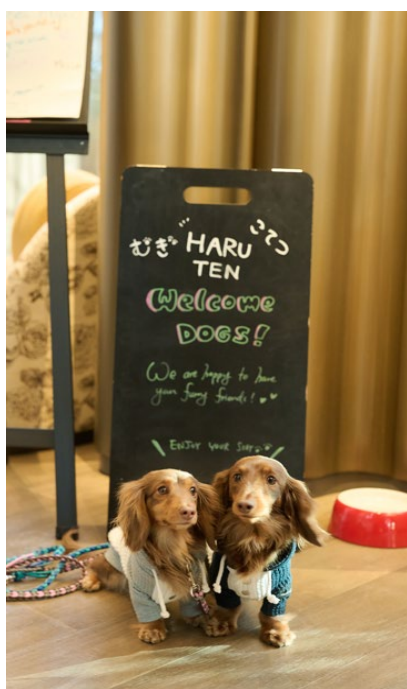 むぎ HARU こてつ
TEN
Welcome
DOGS!
We are happy to have
your furry friends!
ENJOY YOUR STAY